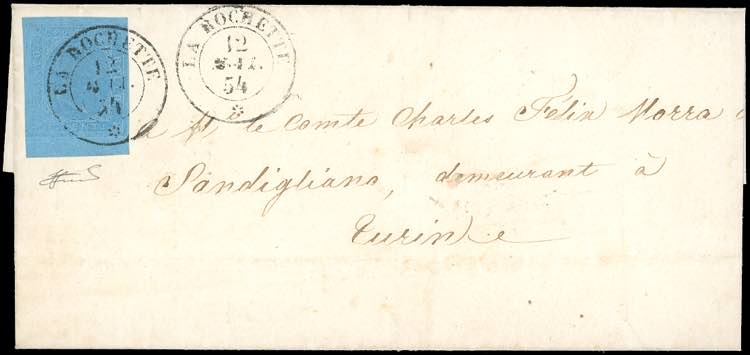 LA ROCHETTE
12
54
LA ROCHETTE
12
54
a M. le Comte Charles Felix Morra
Sandigliano, demeurant à
Turin